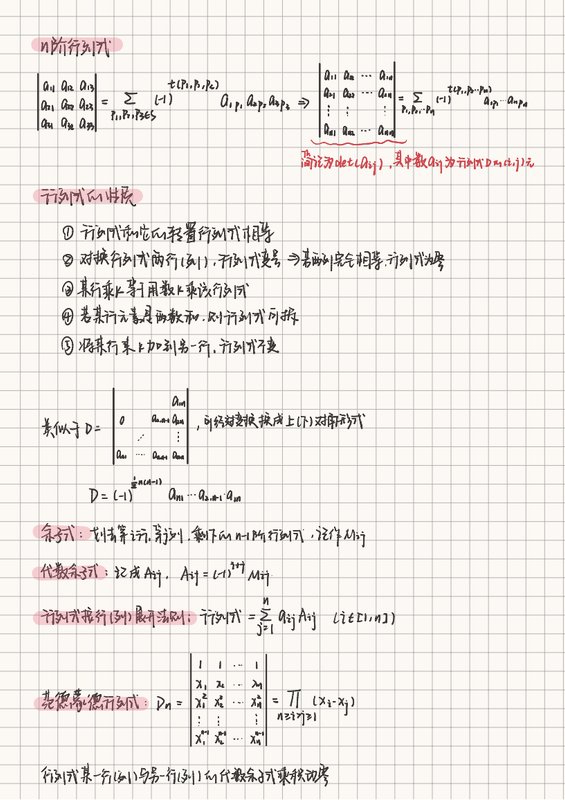 n阶行列式
| a11 a12 a13 |
| a21 a22 a23 | = ∑_{p1,p2,p3∈S} (-1)^{t(p1,p2,p3)} a1p1 a2p2 a3p3 ⇒ | a11 a12 ⋯ a1n | = ∑_{p1,p2,⋯pn} (-1)^{t(p1,p2⋯pn)} a1p1⋯anpn
| a31 a32 a33 |
| a21 a22 ⋯ a2n |
| ⋮ ⋮ ⋮ |
| an1 an2 ⋯ ann |
简记为det(aij),其中数aij为行列式D的(i,j)元
行列式的性质
① 行列式和它的转置行列式相等
② 对换行列式两行(列),行列式变号 ⇒若两列完全相等,行列式为零
③ 某行乘k等于用数k乘该行列式
④ 若某行元素是两数和,则行列式可拆
⑤ 将某行乘k加到另一行,行列式不变
类似于D= | a1n |
| 0 a2,n-1 a2n | ,可经对换换成上(下)对角形式
| ⋰ ⋮ |
| an1 ⋯ ann |
D=(-1)^{½n(n-1)} an1⋯a2,n-1·a1n
余子式:划去第i行,第j列,剩下的n-1阶行列式,记作Mij
代数余子式:记成Aij, Aij=(-1)^{i+j} Mij
行列式按行(列)展开法则:行列式=∑_{j=1}^{n} aij Aij (i∈[1,n])
范德蒙德行列式:Dn= | 1 1 ⋯ 1 |
| x1 x2 ⋯ xn |
| x1² x2² ⋯ xn² | = ∏_{n≥i>j≥1} (xi-xj)
| ⋮ ⋮ ⋮ |
| x1^{n-1} x2^{n-1} ⋯ xn^{n-1} |
行列式某一行(列)与另一行(列)的代数余子式乘积为零